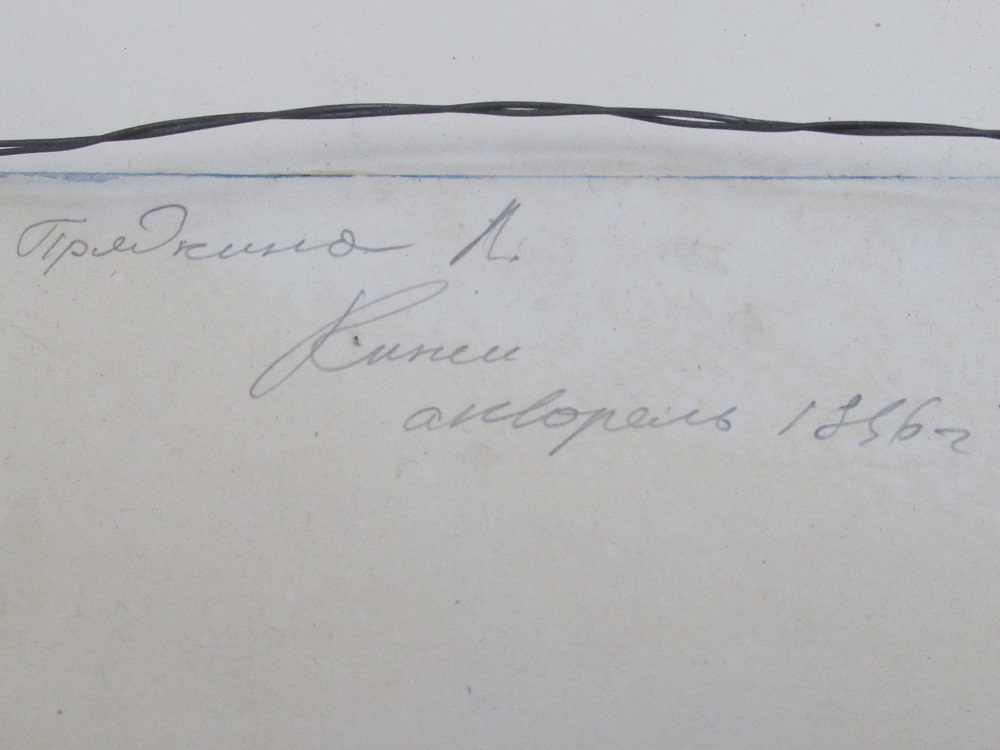 Прядкина Л.
Кижи
акварель 1996 г